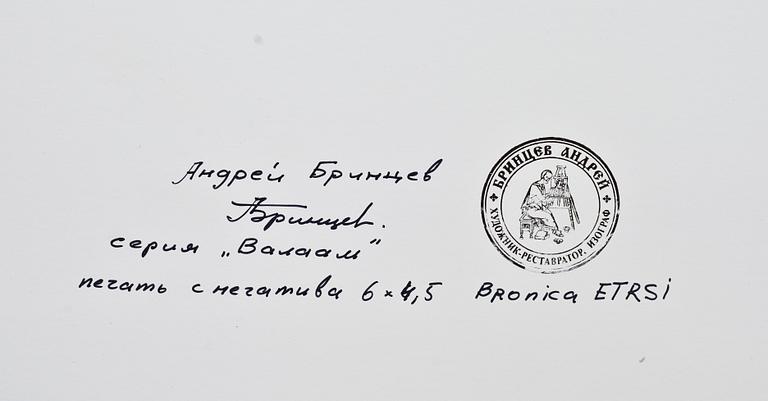 Андрей Бринцев
Бринцев.
серия „Валаам"
печать с негатива 6×4,5 Bronica ETRSi
БРИНЦЕВ АНДРЕЙ
ХУДОЖНИК-РЕСТАВРАТОР. ИЗОГРАФ